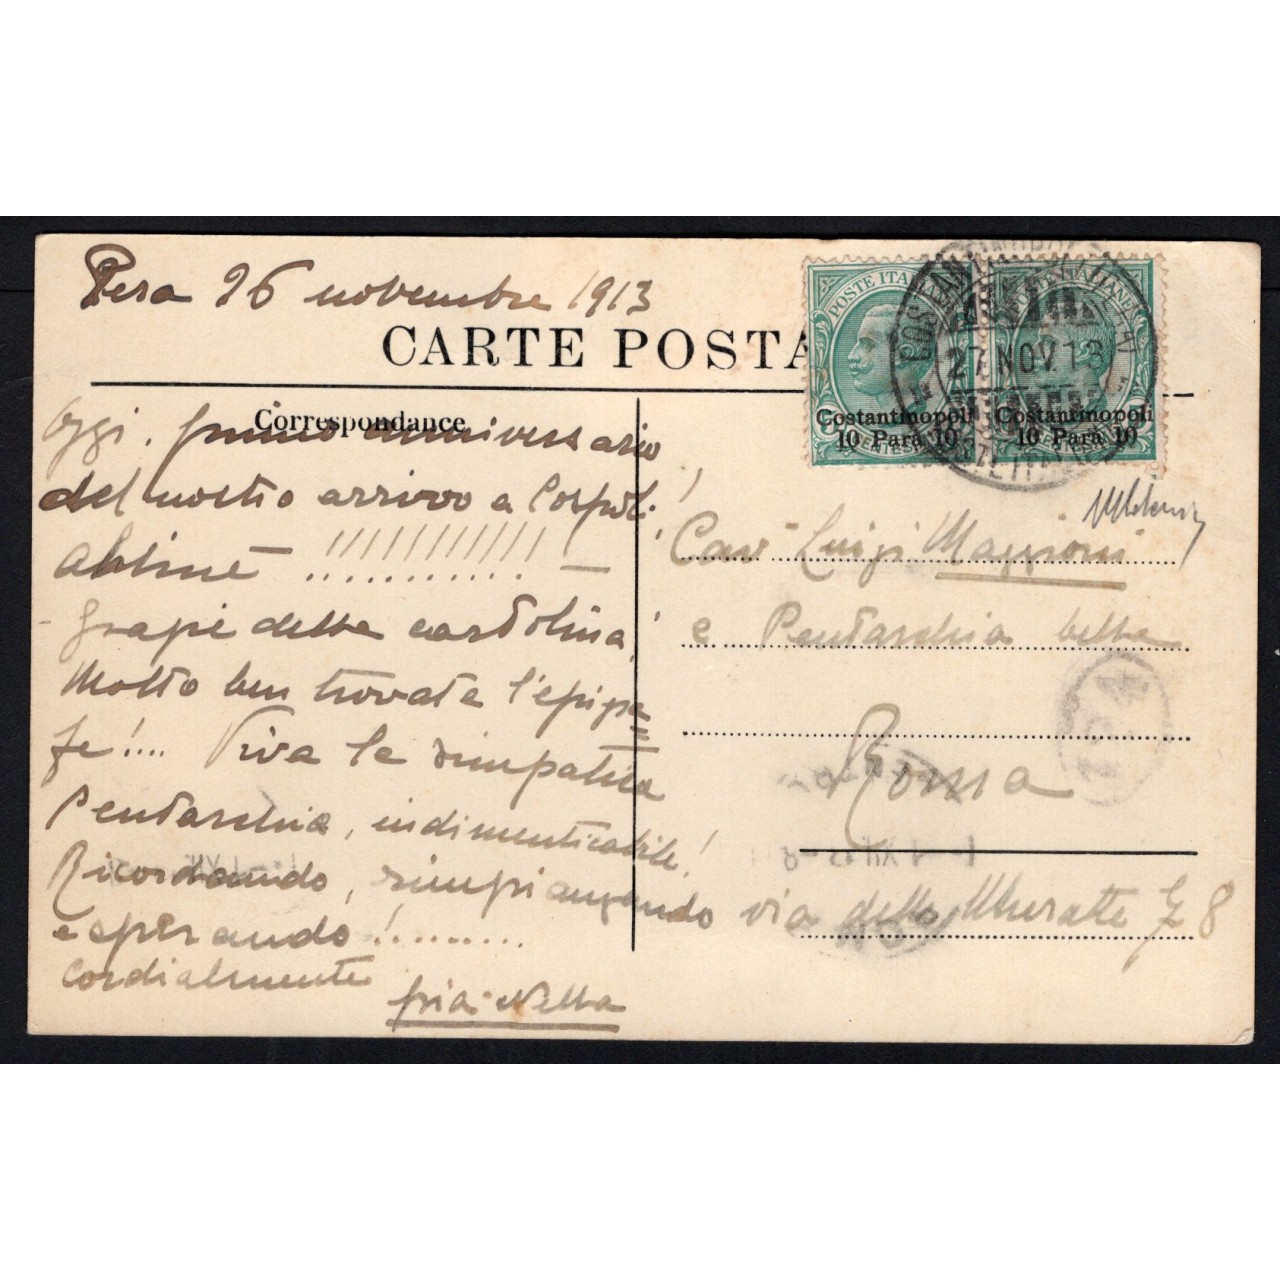 Pera 26 novembre 1913
CARTE POSTA
Correspondance
Oggi, primo anniversario
del nostro arrivo a Cospoli!
!!!!!!!!!!! ........... —
- grazie della cartolina!
Molto ben trovate l'epipa=
fe!.... Viva la simpatica
Pentarchia, indimenticabile!
Ricordando, rimpiangendo
e sperando!.........
cordialmente
Pia Nella
POSTE ITALIANE
Costantinopoli
10 Para 10
POSTE ITALIANE
Costantinopoli
10 Para 10
COSTANTINOPOLI
27 NOV. 13
POSTE ITALIANE
Cav Luigi Maggioni
e Pentarchia bella
Roma
via delle Muratte 78
154